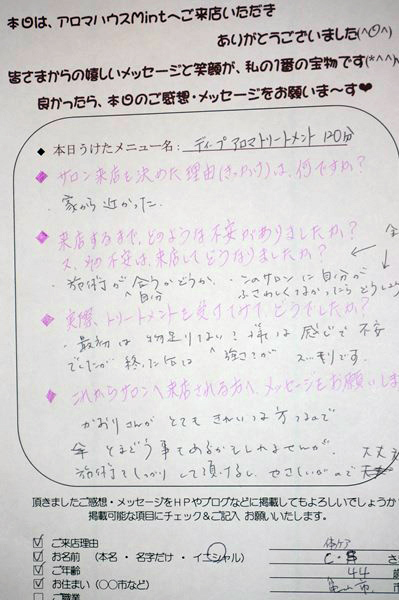 本日は、アロマハウスMintへご来店いただき
ありがとうございました(^O^)
皆さまからの嬉しいメッセージと笑顔が、私の1番の宝物です(*^^*)
良かったら、本日のご感想・メッセージをお願いま～す♥
◆ 本日うけたメニュー名: ディープアロマトリートメント 120分
◆ サロン来店を決めた理由(きっかけ)は、何ですか?
・家から近かった。
◆ 来店するまで、どのような不安がありましたか?
又、その不安は、来店してどうなりましたか?
・施術が自分合うがどうか、・このサロンに自分が
ふさわしくなかったらどうしよう
◆ 実際、トリートメントを受けてみて、どうでしたか?
・最初は物足りない?様な感じで不安
でしたが終った後は強さが
◆ これからサロンへ来店される方へ、メッセージをお願いしま
かおりさんがとてもきれいな方なので
とまどう事もあるかもしれませんが、
施術てしっかりして頂けるし、やさしいがので
頂きましたご感想・メッセージをHPやブログなどに掲載してもよろしいでしょうか
掲載可能な項目にチェック＆ご記入 お願いいたします。
☑ ご来店理由 体ケア
☑ お名前 (本名・名字だけ・イニシャル)
☑ ご年齢 44 歳
☑ お住まい (○○市など) 市
□ ご職業